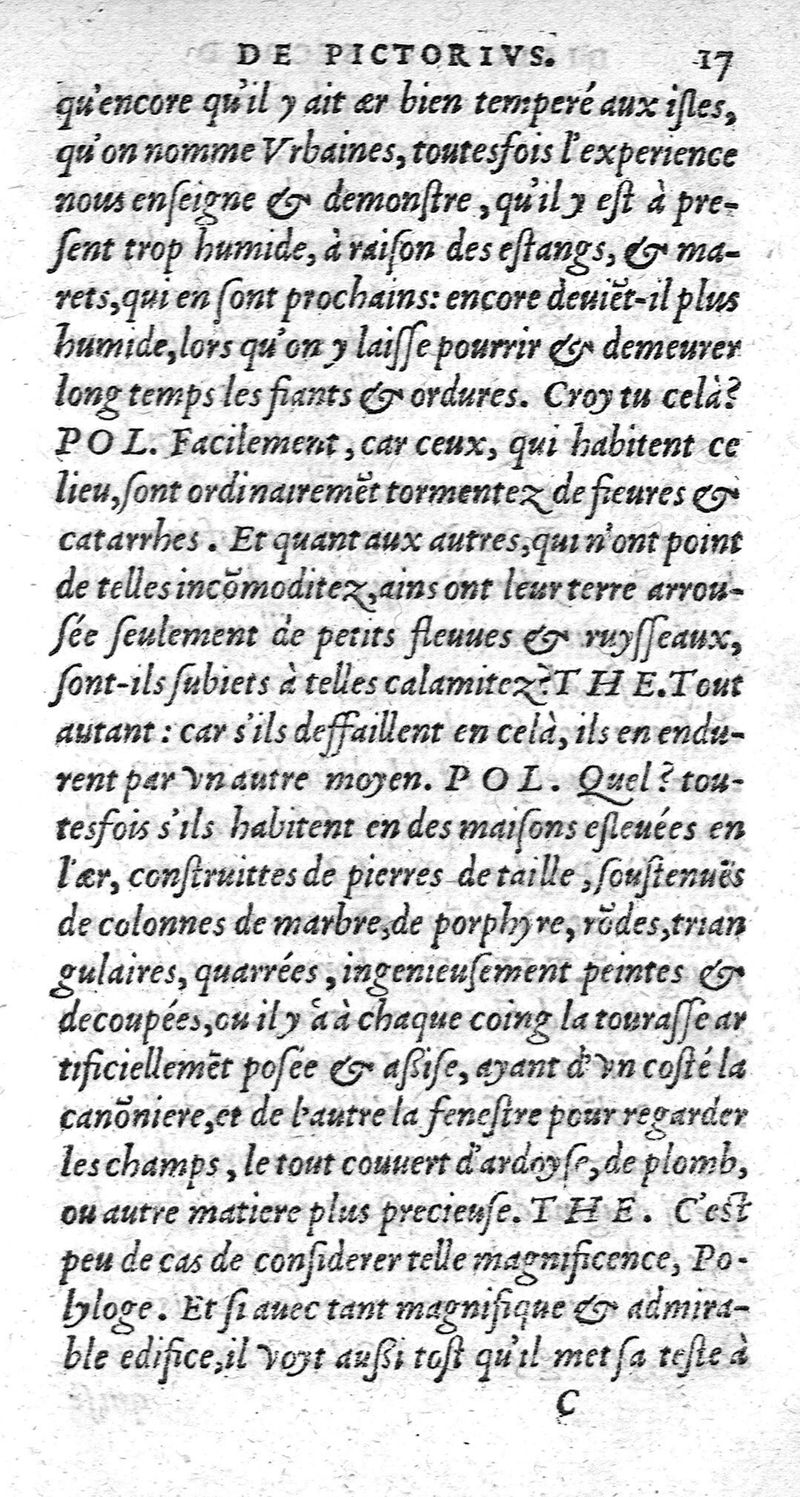 DE PICTORIVS. 17
qu'encore qu'il y ait ær bien temperé aux iſles,
qu'on nomme Vrbaines, toutesfois l'experience
nous enſeigne & demonſtre, qu'il y eſt à pre-
ſent trop humide, à raiſon des eſtangs, & ma-
rets, qui en ſont prochains: encore deuiēt-il plus
humide, lors qu'on y laiſſe pourrir & demeurer
long temps les fiants & ordures. Croy tu celà?
POL. Facilement, car ceux, qui habitent ce
lieu, ſont ordinairemēt tormentez de fieures &
catarrhes. Et quant aux autres, qui n'ont point
de telles incōmoditez, ains ont leur terre arrou-
ſée ſeulement de petits fleuues & ruyſſeaux,
ſont-ils ſubiets à telles calamitez? THE. Tout
autant: car s'ils deffaillent en celà, ils en endu-
rent par vn autre moyen. POL. Quel? tou-
tesfois s'ils habitent en des maiſons eſleuées en
l'ær, conſtruittes de pierres de taille, ſouſtenuës
de colonnes de marbre, de porphyre, rōdes, trian
gulaires, quarrées, ingenieuſement peintes &
decoupées, ou il y à à chaque coing la touraſſe ar
tificiellemēt poſée & aßiſe, ayant d'vn coſté la
canōniere, et de l'autre la feneſtre pour regarder
les champs, le tout couuert d'ardoyſe, de plomb,
ou autre matiere plus precieuſe. THE. C'eſt
peu de cas de conſiderer telle magnificence, Po-
lyloge. Et ſi auec tant magnifique & admira-
ble edifice, il voyt außi toſt qu'il met ſa teſte à
C